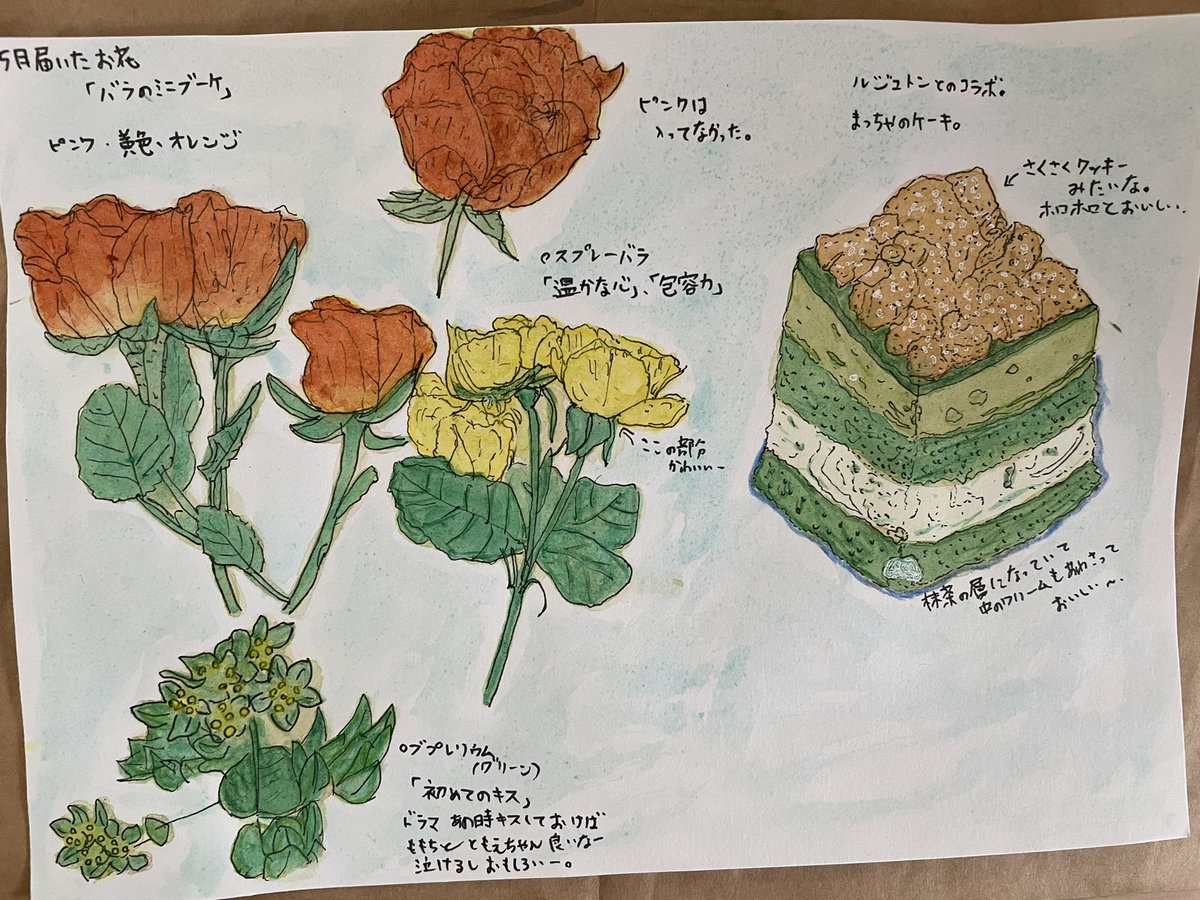 5月届いたお花
「バラのミニブーケ」
ピンク・黄色、オレンジ
ピンクは
入ってなかった。
○スプレーバラ
「温かな心」、「包容力」
ここの部分
かわいいー
○ブプレリウム
(グリーン)
「初めてのキス」
ドラマ あの時キスしておけば
ももちと ともえちゃん 良いなー
泣けるし おもしろいー。
ルジュトンとのコラボ。
まっちゃのケーキ。
さくさくクッキー
みたいな。
ホロホロでおいしい..
抹茶の層になっていて
中のクリームもあわさって
おいしい〜.